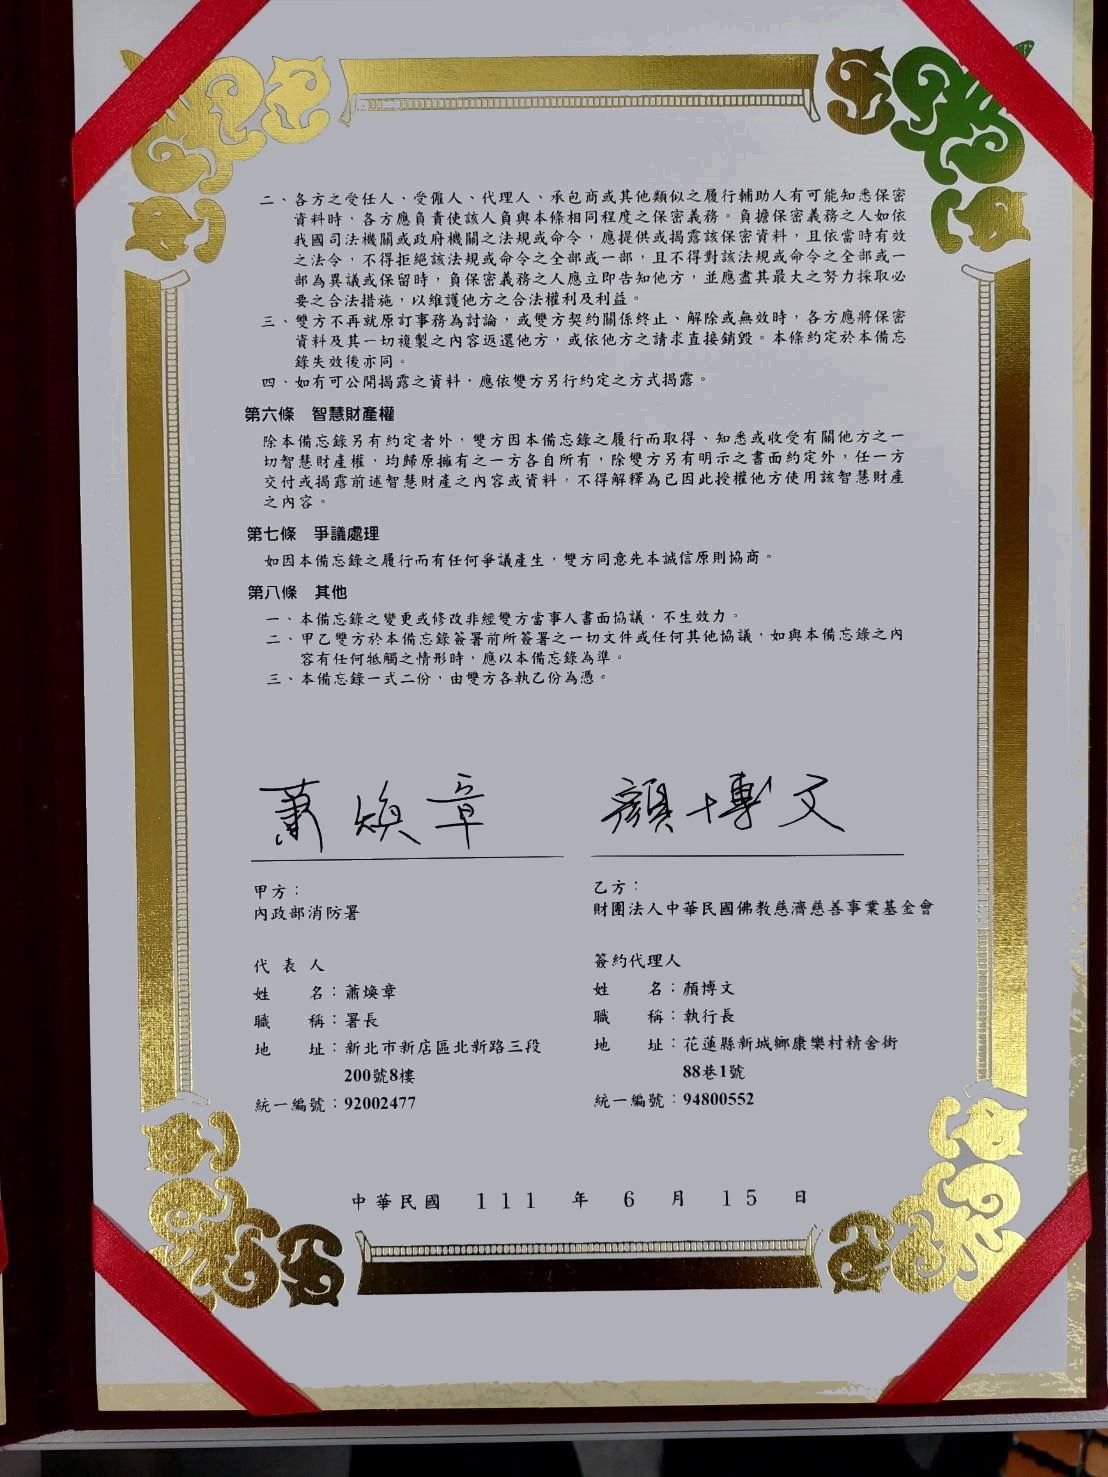 二、各方之受任人、受僱人、代理人、承包商或其他類似之履行輔助人有可能知悉保密
資料時，各方應負責使該人員與本條相同程度之保密義務。負擔保密義務之人如依
我國司法機關或政府機關之法規或命令，應提供或揭露該保密資料，且依當時有效
之法令，不得拒絕該法規或命令之全部或一部，且不得對該法規或命令之全部或一
部為異議或保留時，負保密義務之人應立即告知他方，並應盡其最大之努力採取必
要之合法措施，以維護他方之合法權利及利益。
三、雙方不再就原訂事務為討論，或雙方契約關係終止、解除或無效時，各方應將保密
資料及其一切複製之內容返還他方，或依他方之請求直接銷毀。本條約定於本備忘
錄失效後亦同。
四、如有可公開揭露之資料，應依雙方另行約定之方式揭露。
第六條　智慧財產權
除本備忘錄另有約定者外，雙方因本備忘錄之履行而取得、知悉或收受有關他方之一
切智慧財產權，均歸原擁有之一方各自所有，除雙方另有明示之書面約定外，任一方
交付或揭露前述智慧財產之內容或資料，不得解釋為已因此授權他方使用該智慧財產
之內容。
第七條　爭議處理
如因本備忘錄之履行而有任何爭議產生，雙方同意先本誠信原則協商。
第八條　其他
一、本備忘錄之變更或修改非經雙方當事人書面協議，不生效力。
二、甲乙雙方於本備忘錄簽署前所簽署之一切文件或任何其他協議，如與本備忘錄之內
容有任何牴觸之情形時，應以本備忘錄為準。
三、本備忘錄一式二份，由雙方各執乙份為憑。
蕭煥章　顏博文
甲方：
內政部消防署
代表人
姓　名：蕭煥章
職　稱：署長
地　址：新北市新店區北新路三段
200號8樓
統一編號：92002477
乙方：
財團法人中華民國佛教慈濟慈善事業基金會
簽約代理人
姓　名：顏博文
職　稱：執行長
地　址：花蓮縣新城鄉康樂村精舍街
88巷1號
統一編號：94800552
中華民國 111 年 6 月 15 日